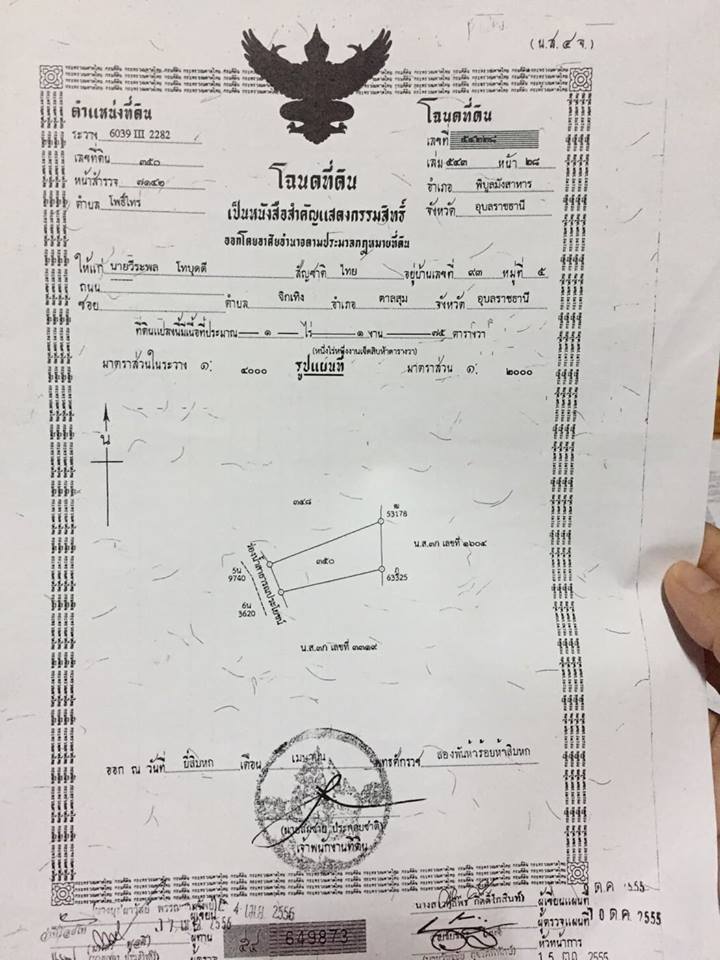 (น.ส. ๔ จ.)
ตำแหน่งที่ดิน
ระวาง 6039 III 2282
เลขที่ดิน ๓๕๐
หน้าสำรวจ ๗๑๔๒
ตำบล โพธิ์ไทร
โฉนดที่ดิน
เลขที่ ๕๔๒๒๘
เล่ม ๕๔๓ หน้า ๒๘
อำเภอ พิบูลมังสาหาร
จังหวัด อุบลราชธานี
โฉนดที่ดิน
เป็นหนังสือสำคัญแสดงกรรมสิทธิ์
ออกโดยอาศัยอำนาจตามประมวลกฎหมายที่ดิน
ให้แก่ นายวีระพล โทบุดดี สัญชาติ ไทย อยู่บ้านเลขที่ ๙๓ หมู่ที่ ๕
ถนน
ซอย ตำบล จิกเทิง อำเภอ ตาลสุม จังหวัด อุบลราชธานี
ที่ดินแปลงนี้มีเนื้อที่ประมาณ ๑ ไร่ ๑ งาน ๗๕ ตารางวา
(หนึ่งไร่หนึ่งงานเจ็ดสิบห้าตารางวา)
มาตราส่วนในระวาง ๑: ๔๐๐๐ รูปแผนที่ มาตราส่วน ๑: ๒๐๐๐
น
๓๔๘
53178
น.ส.๓ก เลขที่ ๑๖๐๔
๓๕๐
ร่องน้ำสาธารณประโยชน์
5น
9740
63325
6น
3620
น.ส.๓ก เลขที่ ๓๓๑๙
ออก ณ วันที่ ยี่สิบหก เดือน เมษายน พุทธศักราช สองพันห้าร้อยห้าสิบหก
เจ้าพนักงานที่ดิน
ผู้เขียน
4 เม.ย. 2556
ผู้ทาน
649873
ผู้เขียนแผนที่
ผู้ตรวจแผนที่
10 ต.ค. 2555
หัวหน้าการ
15 ต.ค. 2555